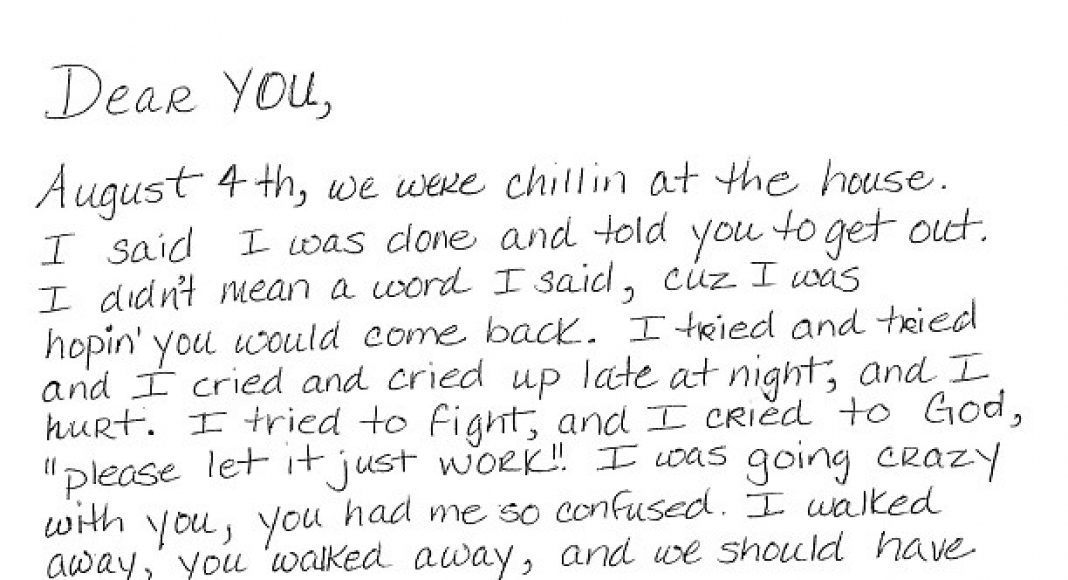 Dear YOU,
August 4th, we were chillin at the house.
I said I was done and told you to get out.
I didn't mean a word I said, cuz I was
hopin' you would come back. I tried and tried
and I cried and cried up late at night, and I
hurt. I tried to fight, and I cried to God,
"please let it just work"!! I was going crazy
with you, you had me so confused. I walked
away, you walked away, and we should have